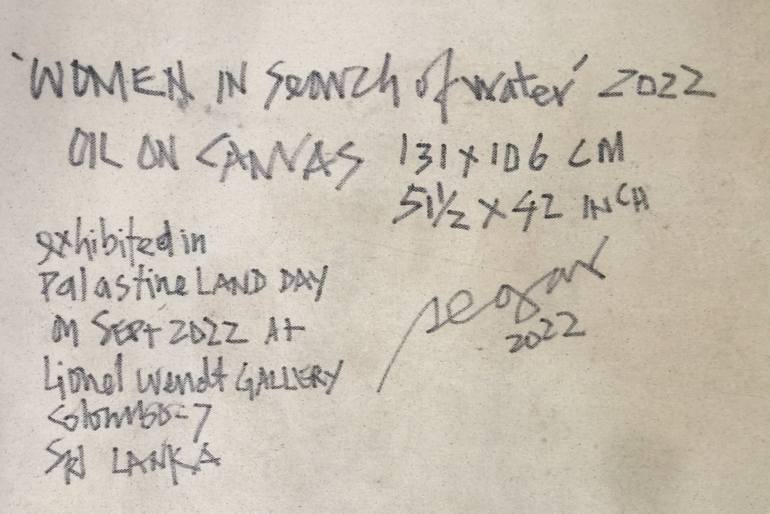 'WOMEN IN Search of water' 2022
OIL ON CANVAS 131 x 106 CM
51½ x 42 INCH
exhibited in
Palastine LAND DAY
on SEPT 2022 At
Lionel Wendt GALLERY
Colombo-7
SRI LANKA
segar
2022